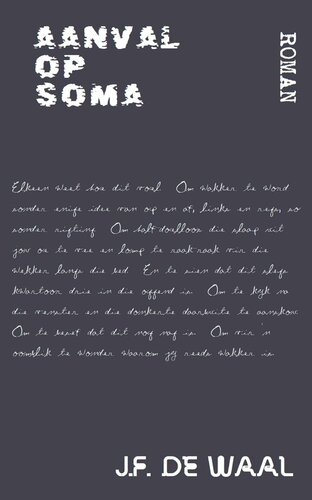 AANVAL
OP
SOMA
ROMAN
Elkeen weet hoe dit voel. Om wakker te word
sonder enige idee van op en af, links en regs, so
sonder rigting. Om halfdoelloos die slaap uit
jou oë te vee en lomp te raak-raak vir die
wekker langs die bed. En te sien dat dit slegs
kwartoor drie in die oggend is. Om te kyk na
die venster en die donkerte daarbuite te aanskou.
Om te besef dat dit nog nag is. Om vir 'n
oomblik te wonder waarom jy reeds wakker is.
J.F. DE WAAL